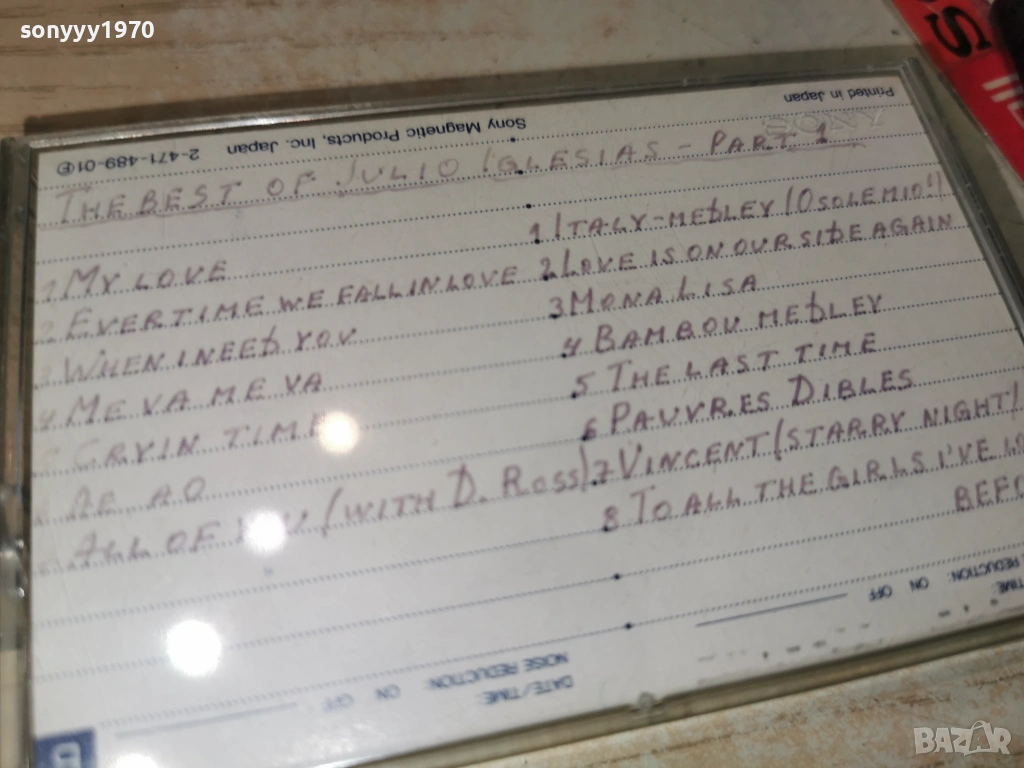 sonyyy1970
Printed in Japan
Sony Magnetic Products, Inc. Japan 2-471-489-01
SONY
THE BEST OF JULIO IGLESIAS - PART 1
1 MY LOVE
2 EVERTIME WE FALL IN LOVE
3 WHEN I NEED YOU
4 ME VA ME VA
CRYIN TIME
AE AO
ALL OF YOU (WITH D. ROSS)
1 ITALY-MEDLEY (O SOLE MIO!)
2 LOVE IS ON OUR SIDE AGAIN
3 MONA LISA
4 BAMBOU MEDLEY
5 THE LAST TIME
6 PAUVRES DIBLES
7 VINCENT (STARRY NIGHT)
8 TO ALL THE GIRLS I'VE
DATE/TIME:
NOISE REDUCTION: ON OFF
TIME:
REDUCTION: ON OFF
BAZAR